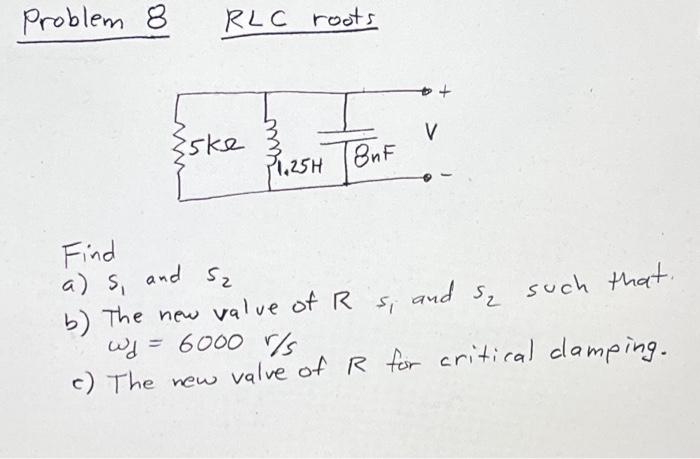 Problem 8 RLC roots
+
5kΩ 1.25H 8nF V
-
Find
a) s₁ and s₂
b) The new value of R s₁ and s₂ such that.
ωd = 6000 r/s
c) The new value of R for critical damping.